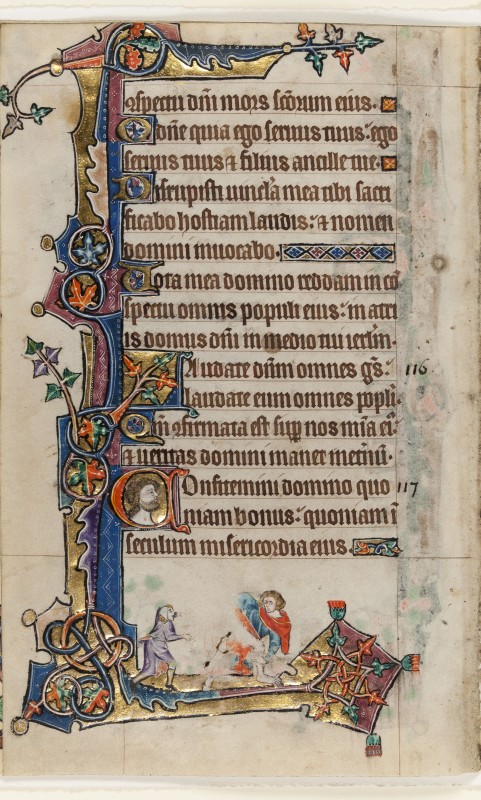 ɔspectu dñi mors scõrum eius.
O dñe quia ego seruus tuus: ego
seruus tuus ⁊ filius ancille tue.
Dirrupisti uincl̃a mea tibi sacri
ficabo hostiam laudis: ⁊ nomen
domini inuocabo.
Uota mea domino reddam in cõ
spectu omnis populi eius: in atri
is domus dñi in medio tui ierlm̃.
Laudate dñm omnes gẽs: 116
laudate eum omnes pp̃li.
Qm̃ ɔfirmata est sup̃ nos mĩa ei:
⁊ ueritas domini manet inet̃nũ.
Confitemini domino quo 117
niam bonus: quoniam ĩ
seculum misericordia eius.